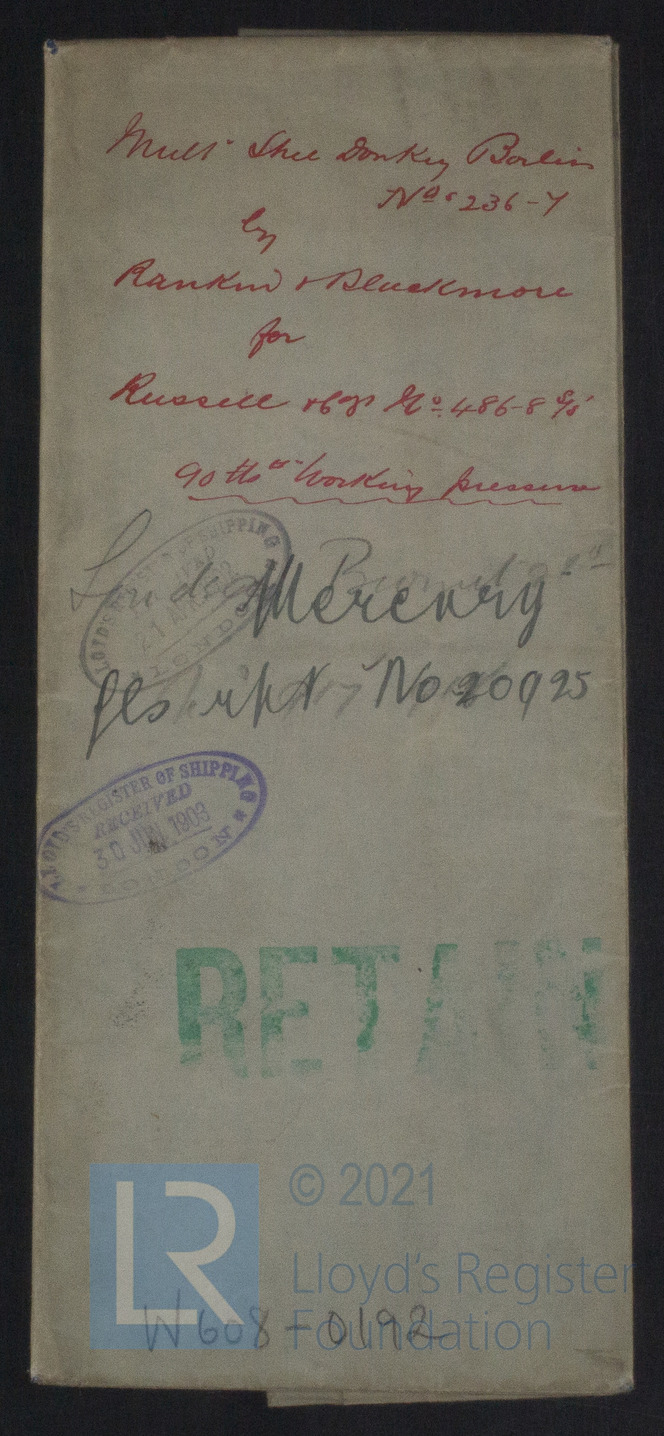 Mult Stee Donkey Boilers
Nos. 236-7
by
Rankin & Blackmore
for
Russell & Co's No. 486-8 S/S
90 lbs Working pressure
LLOYD'S REGISTER OF SHIPPING
21
Mercury
Gls rpt No 20925
LLOYD'S REGISTER OF SHIPPING
RECEIVED
30 JUN 1903
LONDON
RETAIN
LR
© 2021
Lloyd's Register
Foundation
W608-0192